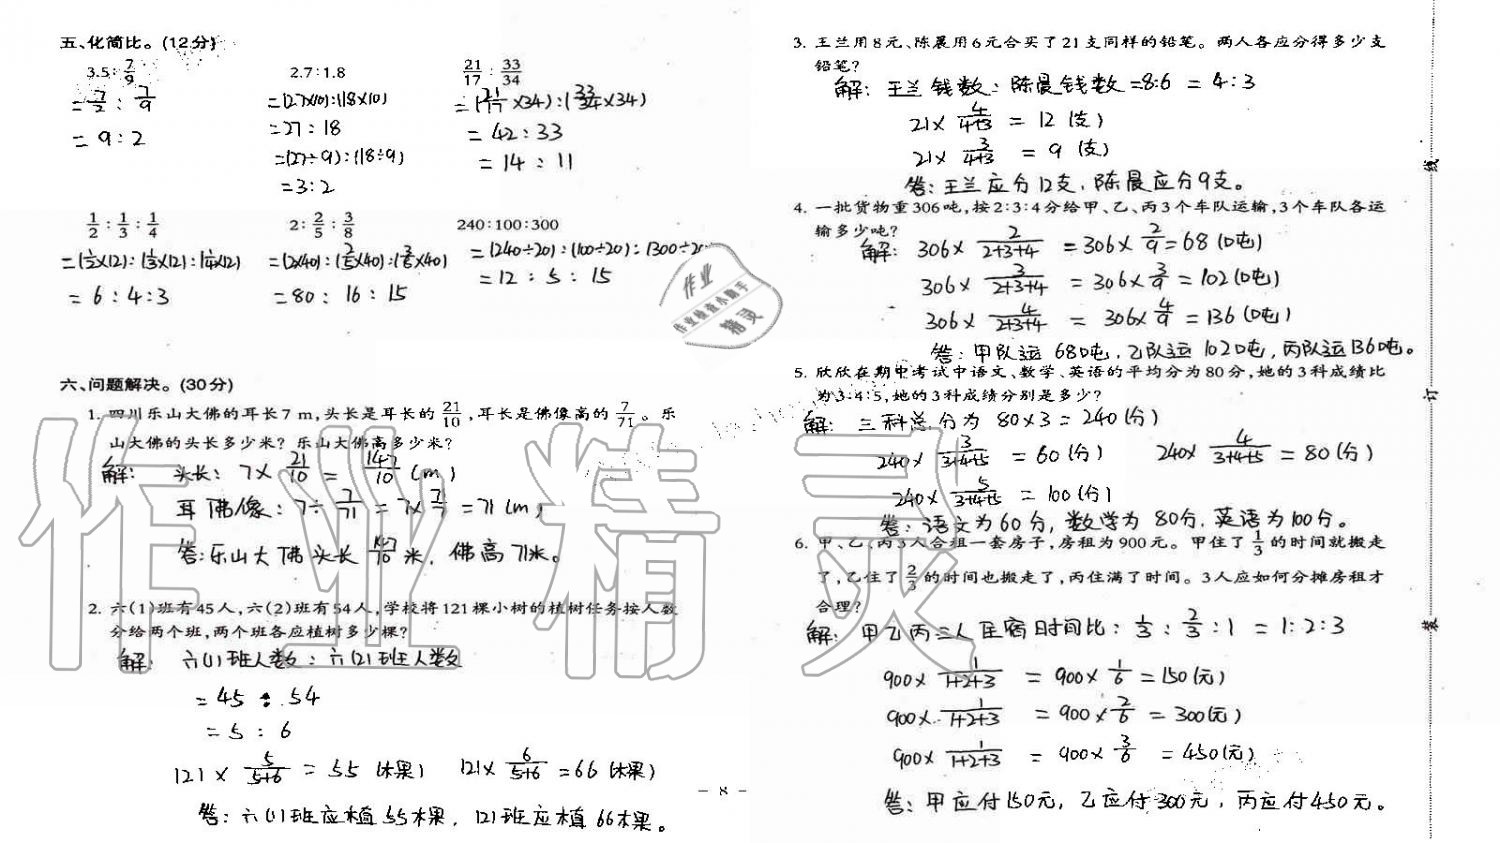 五、化简比。(12分)
3.5:7/9
=7/2:7/9
=9:2
2.7:1.8
=(27×10):(18×10)
=27:18
=(27÷9):(18÷9)
=3:2
21/17:33/34
=(21/17×34):(33/34×34)
=42:33
=14:11
1/2:1/3:1/4
=(1/2×12):(1/3×12):(1/4×12)
=6:4:3
2:2/5:3/8
=(2×40):(2/5×40):(3/8×40)
=80:16:15
240:100:300
=(240÷20):(100÷20):(300÷2
=12:5:15
六、问题解决。(30分)
1. 四川乐山大佛的耳长7 m,头长是耳长的21/10,耳长是佛像高的7/71。乐
山大佛的头长多少米?乐山大佛高多少米?
解: 头长:7×21/10=147/10(m)
耳佛像:7÷7/71=7×71/7=71(m)
答:乐山大佛头长147/10米,佛高71米。
2. 六(1)班有45人,六(2)班有54人,学校将121棵小树的植树任务按人数
分给两个班,两个班各应植树多少棵?
解: 六(1)班人数:六(2)班人数
=45:54
=5:6
121×5/5+6=55(棵) 121×6/5+6=66(棵)
答:六(1)班应植55棵,(2)班应植66棵。
3. 王兰用8元、陈晨用6元合买了21支同样的铅笔。两人各应分得多少支
铅笔?
解:王兰钱数:陈晨钱数=8:6=4:3
21×4/4+3=12(支)
21×3/4+3=9(支)
答:王兰应分12支,陈晨应分9支。
4. 一批货物重306吨,按2:3:4分给甲、乙、丙3个车队运输,3个车队各运
输多少吨?
解: 306×2/2+3+4=306×2/9=68(吨)
306×3/2+3+4=306×3/9=102(吨)
306×4/2+3+4=306×4/9=136(吨)
答:甲队运68吨,乙队运102吨,丙队运136吨。
5. 欣欣在期中考试中语文、数学、英语的平均分为80分,她的3科成绩比
为3:4:5,她的3科成绩分别是多少?
解: 三科总分为 80×3=240(分)
240×3/3+4+5=60(分) 240×4/3+4+5=80(分)
240×5/3+4+5=100(分)
答:语文为60分,数学为80分,英语为100分。
6. 甲、乙、丙3人合租一套房子,房租为900元。甲住了1/3的时间就搬走
了,乙住了2/3的时间也搬走了,丙住满了时间。3人应如何分摊房租才
合理?
解: 甲乙丙三人住宿时间比:1/3:2/3:1=1:2:3
900×1/1+2+3=900×1/6=150(元)
900×1/1+2+3=900×2/6=300(元)
900×1/1+2+3=900×3/6=450(元)
答:甲应付150元,乙应付300元,丙应付450元。
- 8 -
线
订
装
作业
作业检查小助手
精灵
作业精灵